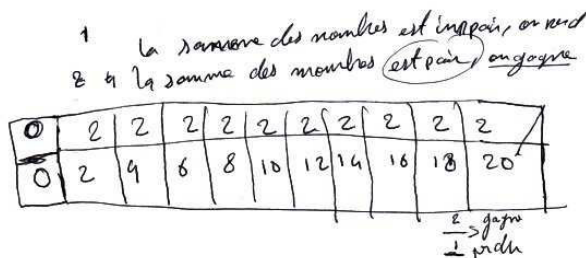 1 la somme des nombres est impair, on perd
2 si la somme des nombres est pair, on gagne
0 2 2 2 2 2 2 2 2 2 2
0 2 4 6 8 10 12 14 16 18 20
2 → gagne
1 perdu